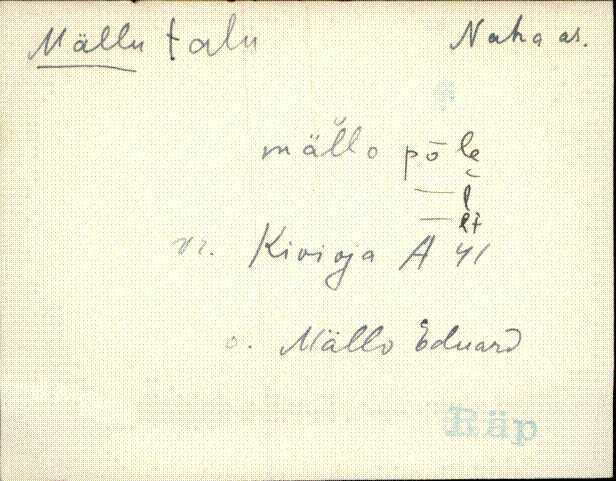 Mällu talu Naha as.
mällo pō le
— l
— lt
vr. Kivioja A 41
o. Mällo Eduard
Räp